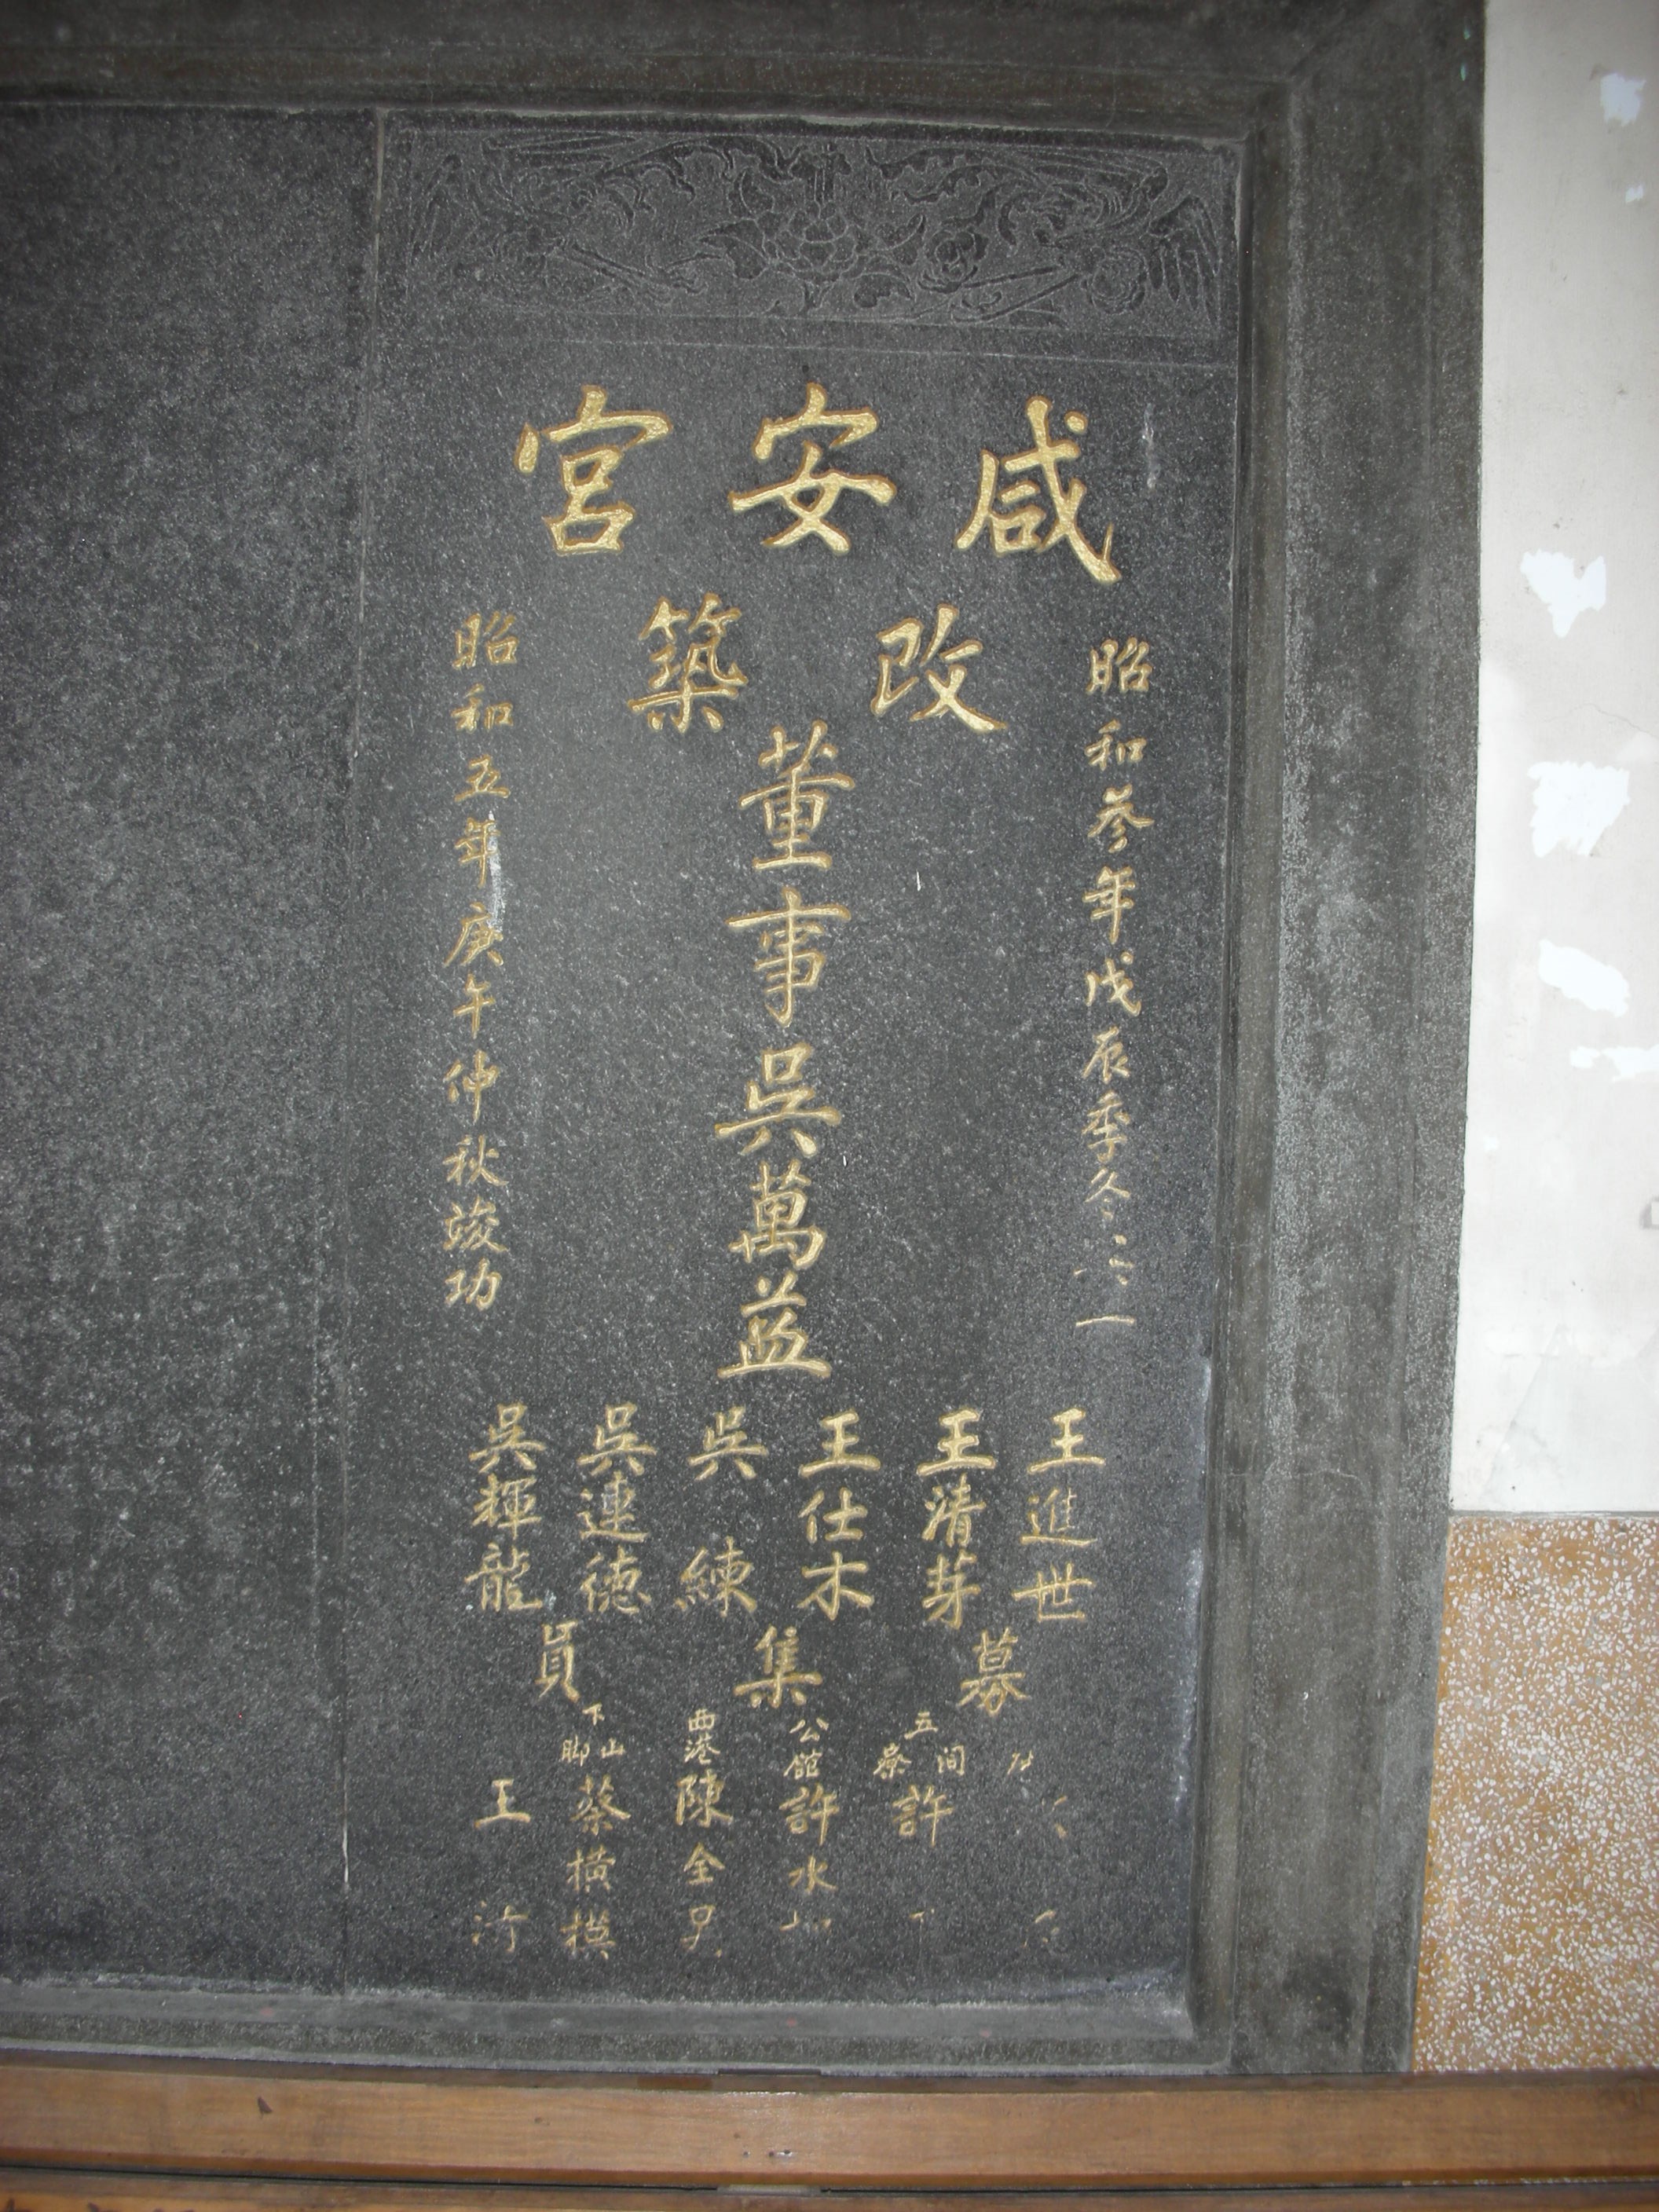 咸安宮
改築
昭和參年戊辰季冬
董事吳萬益
昭和五年庚午仲秋竣功
王進世
王清芽
王仕木
吳練
吳連德
吳輝龍
募集員
五間寮許
公館許水
西港陳全
下山腳蔡橫模
王